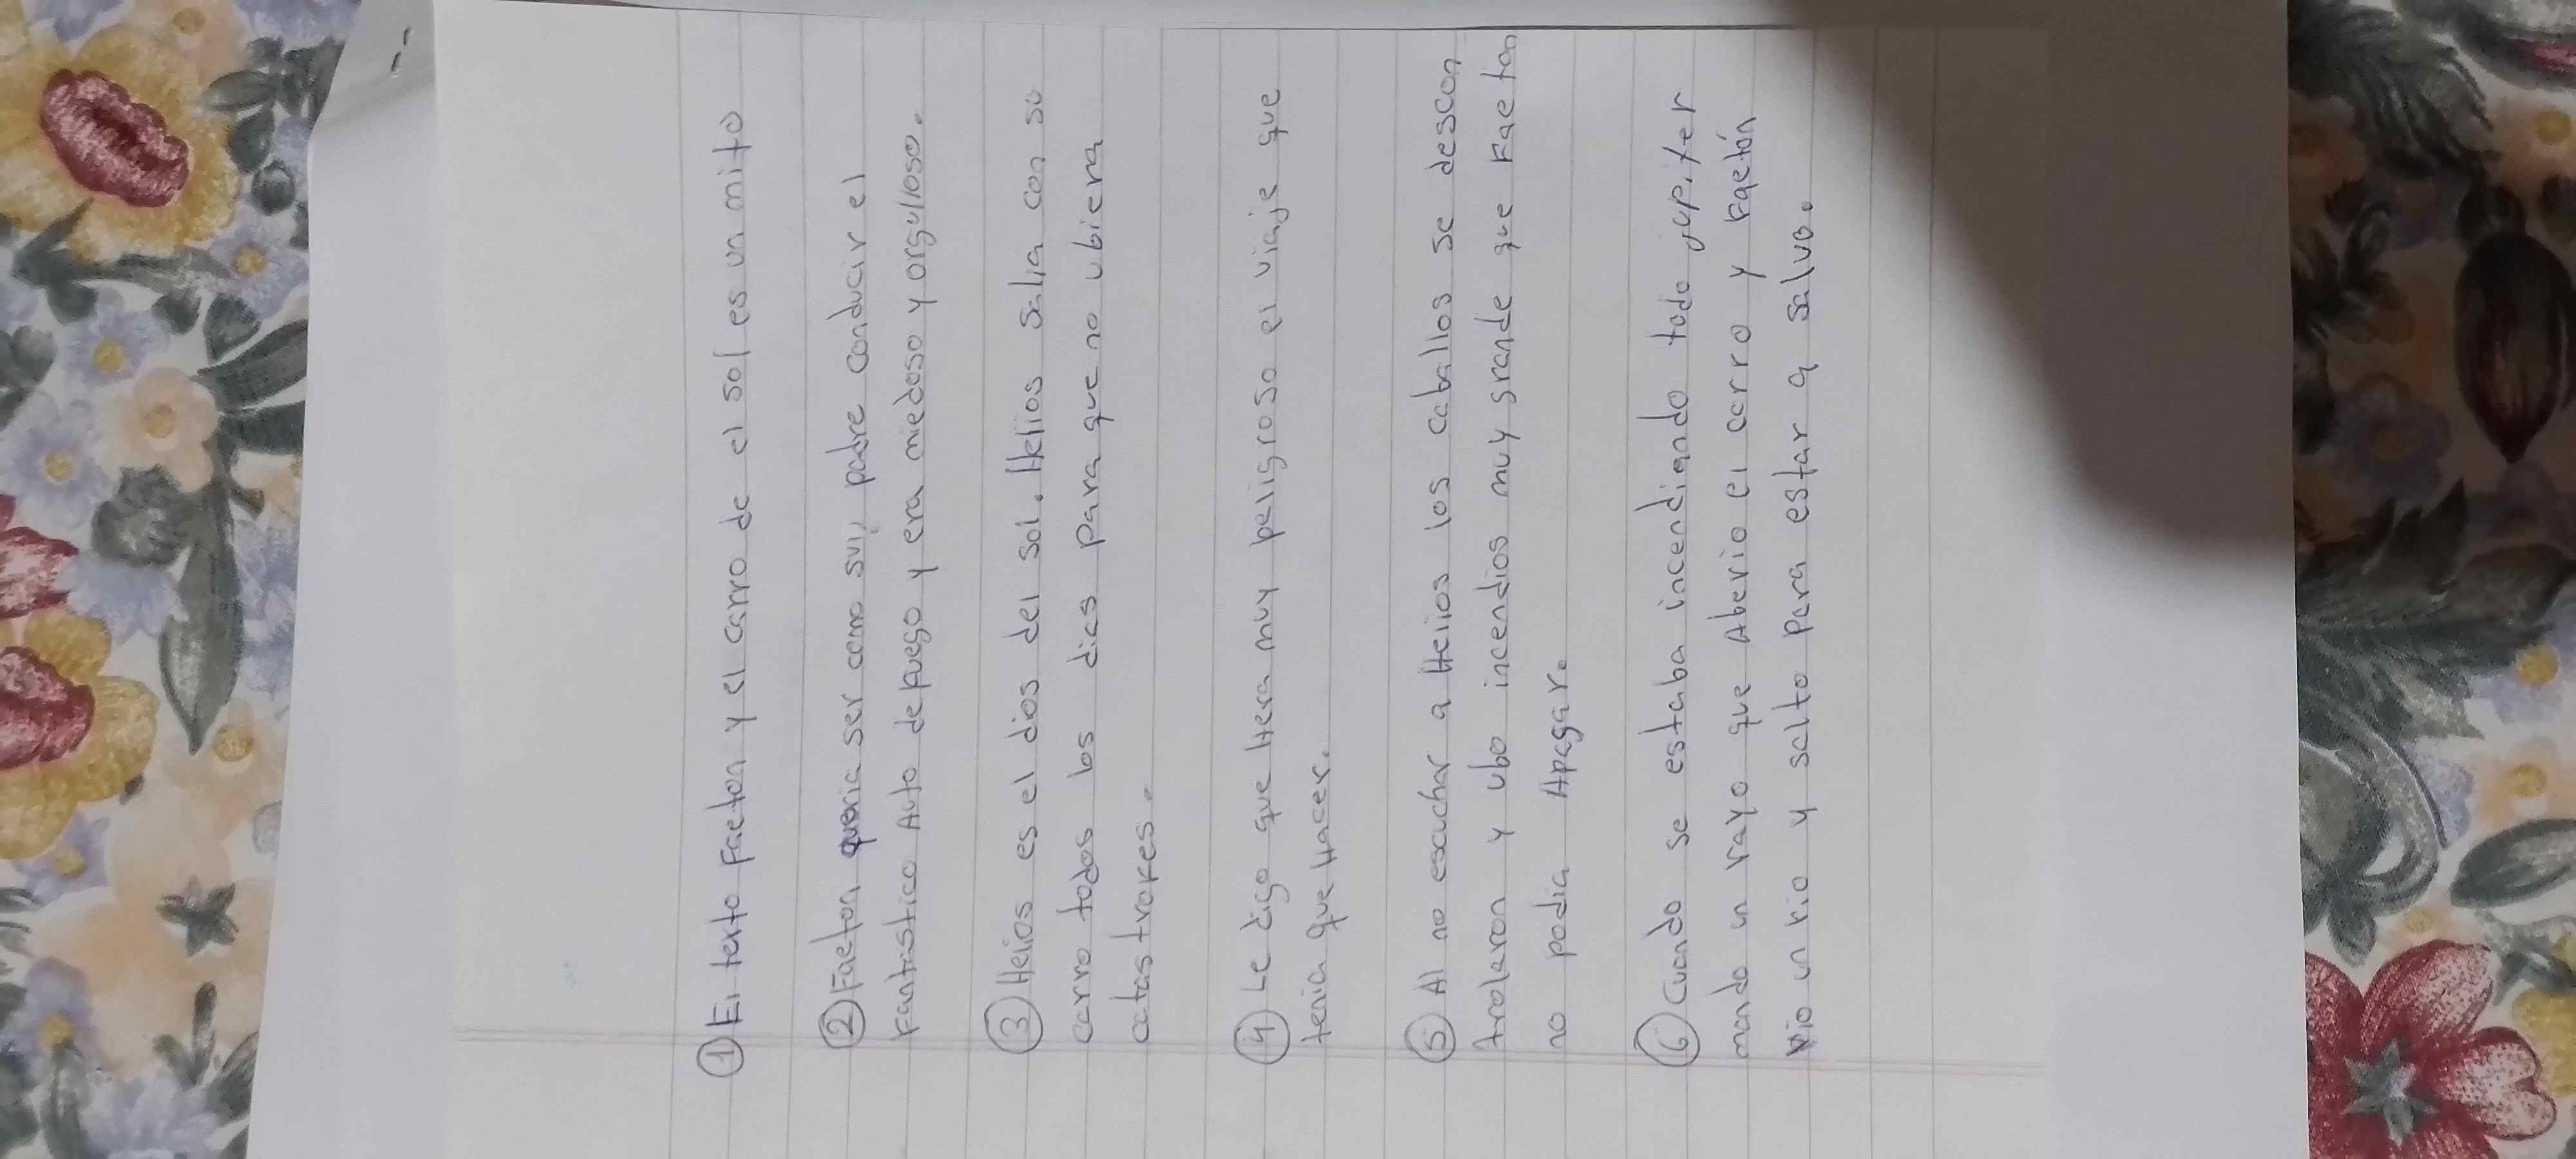 ① El texto Faeton y el carro de el sol es un mito
② Faeton queria ser como su padre conducir el
Fantastico Auto de fuego y era miedoso y orgulloso.
③ Helios es el dios del sol. Helios salia con su
carro todos los dias para que no ubiera
catastrofes.
④ Le digo que Hera muy peligroso el viaje que
tenia que Hacer.
⑤ Al no escuchar a Helios los caballos se descon
trolaron y ubo incendios muy grande que Faeton
no podia Apagar.
⑥ Cuando se estaba incendiando todo jupiter
mando un rayo que Aberio el carro y Faetón
vio un rio y salto para estar a salvo.